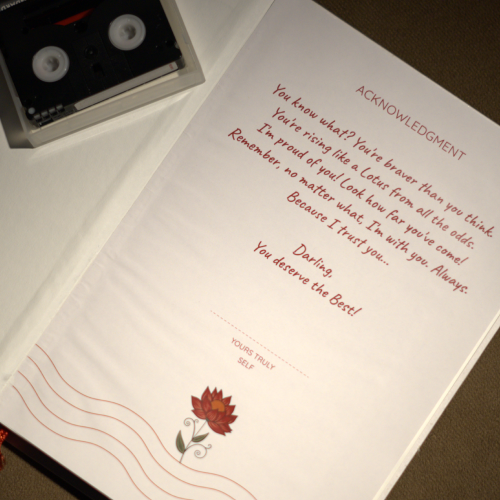 ACKNOWLEDGMENT
You know what? You're braver than you think.
You're rising like a Lotus from all the odds.
I'm proud of you! Look how far you've come!
Remember, no matter what, I'm with you. Always.
Because I trust you...
Darling,
You deserve the Best!
YOURS TRULY
SELF